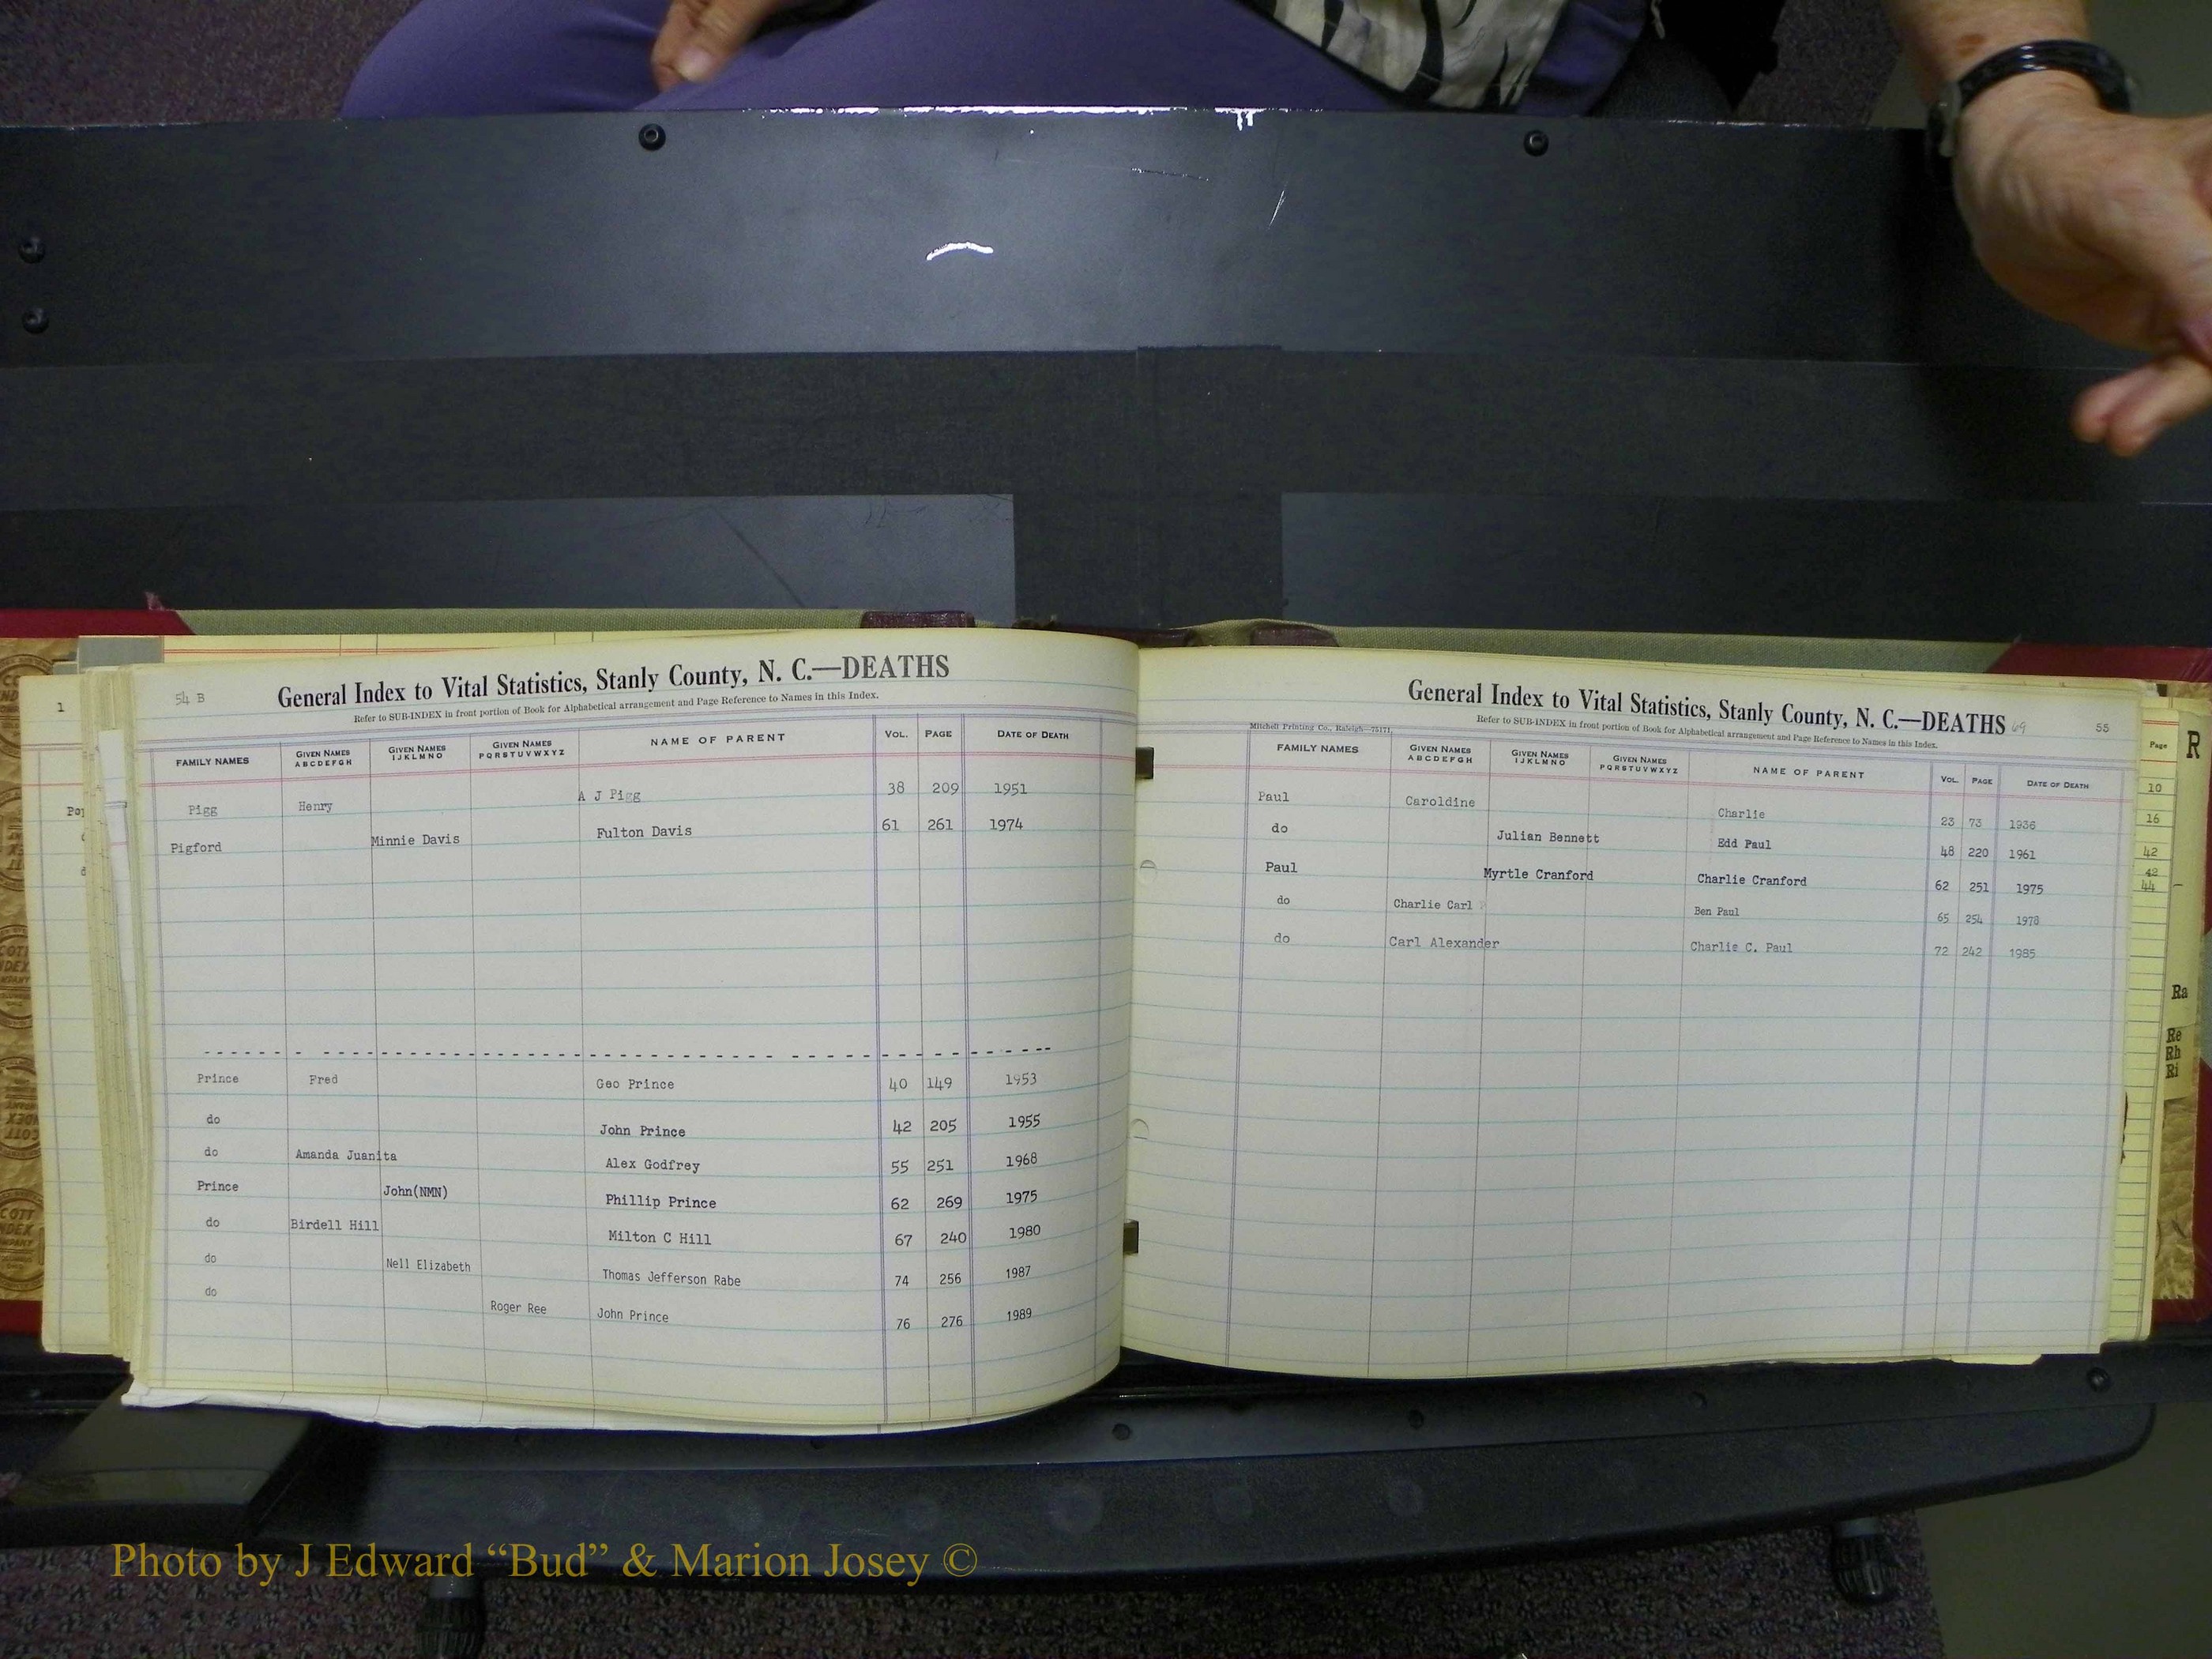 54 B
General Index to Vital Statistics, Stanly County, N. C.—DEATHS
Refer to SUB-INDEX in front portion of Book for Alphabetical arrangement and Page Reference to Names in this Index.
FAMILY NAMES GIVEN NAMES ABCDEFGH GIVEN NAMES IJKLMNO GIVEN NAMES PQRSTUVWXYZ NAME OF PARENT VOL. PAGE DATE OF DEATH
Pigg Henry A J Pigg 38 209 1951
Pigford Minnie Davis Fulton Davis 61 261 1974
Prince Fred Geo Prince 40 149 1953
do John Prince 42 205 1955
do Amanda Juanita Alex Godfrey 55 251 1968
Prince John(NMN) Phillip Prince 62 269 1975
do Birdell Hill Milton C Hill 67 240 1980
do Nell Elizabeth Thomas Jefferson Rabe 74 256 1987
do Roger Ree John Prince 76 276 1989
General Index to Vital Statistics, Stanly County, N. C.—DEATHS 69 55
Refer to SUB-INDEX in front portion of Book for Alphabetical arrangement and Page Reference to Names in this Index.
Mitchell Printing Co., Raleigh—75171
FAMILY NAMES GIVEN NAMES ABCDEFGH GIVEN NAMES IJKLMNO GIVEN NAMES PQRSTUVWXYZ NAME OF PARENT VOL. PAGE DATE OF DEATH
Paul Caroldine Charlie 23 73 1936
do Julian Bennett Edd Paul 48 220 1961
Paul Myrtle Cranford Charlie Cranford 62 251 1975
do Charlie Carl Ben Paul 65 254 1978
do Carl Alexander Charlie C. Paul 72 242 1985
1
Page
10
16
42
42
44
R
Ra
Re
Rh
Ri
Photo by J Edward “Bud” & Marion Josey ©